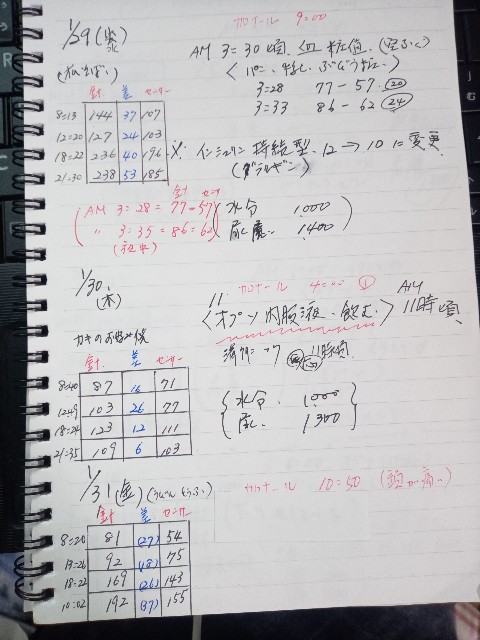 1/29 (水)
カロナール 9=00
AM 3=30頃、血糖値
3=28 77-57 (20)
3=33 86-62 (24)
針 差 センサー
8=13 144 37 107
12=20 127 24 103
18=22 236 40 196
21=30 238 53 185
※ インシュリン 持続型、12→10に変更
AM 3=28=77-57
〃 3=35=86=62
水分 1000
尿量 1400
1/30 (木)
カロナール 4=00 ①
〈オプソ内服液、飲む〉 AM 11時頃
カキのお好み後
針 差 センサー
8=40 87 16 71
12=49 103 26 77
18=24 123 12 111
21=35 109 6 103
11時頃
水分、 1000
尿 1300
1/31 (金)
カロナール 10=50 (頭が痛い)
針 差 センサー
8=20 81 (27) 54
13=26 92 (18) 75
18=22 169 (26) 143
10=02 192 (37) 155